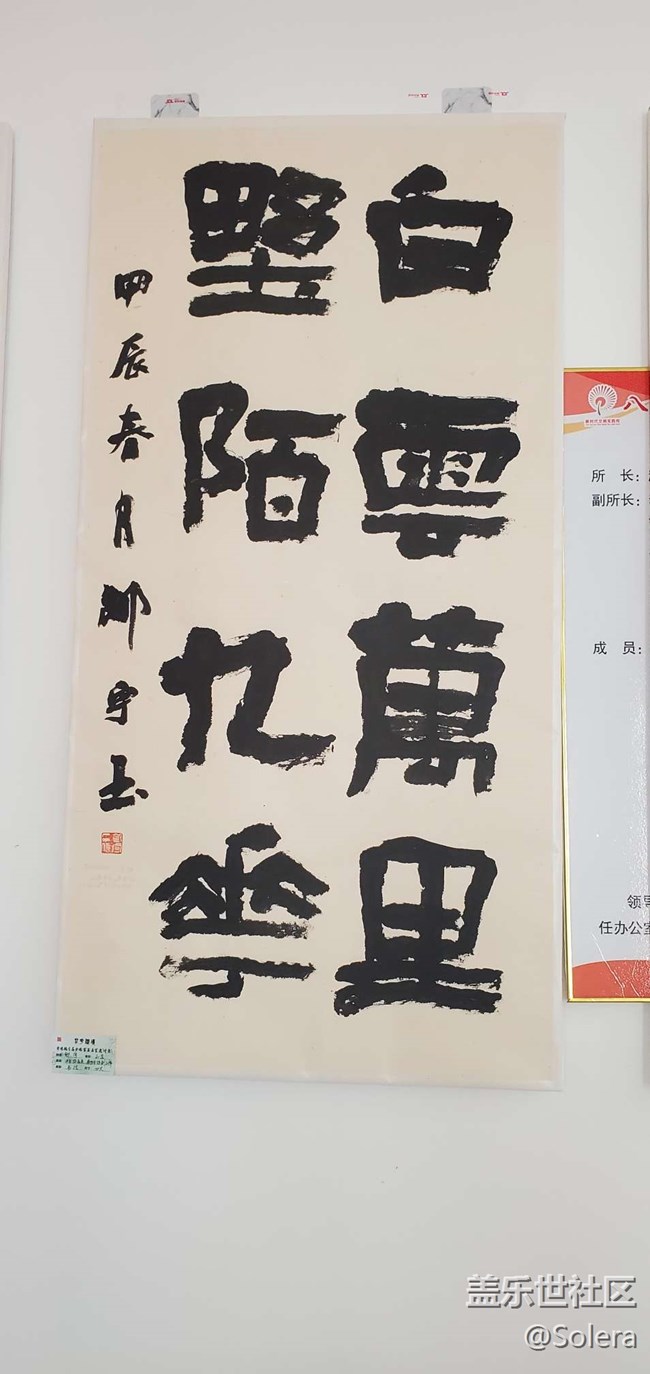 白雲萬里
野陌九華
甲辰春月
八
所 长:
副所长:
成 员:
任办公室
盖乐世社区
@Solera